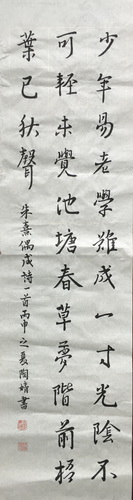 少年易老學難成一寸光陰不
可輕未覺池塘春草夢階前梧
葉已秋聲
朱熹偶成詩一首丙申之夏陶靖書